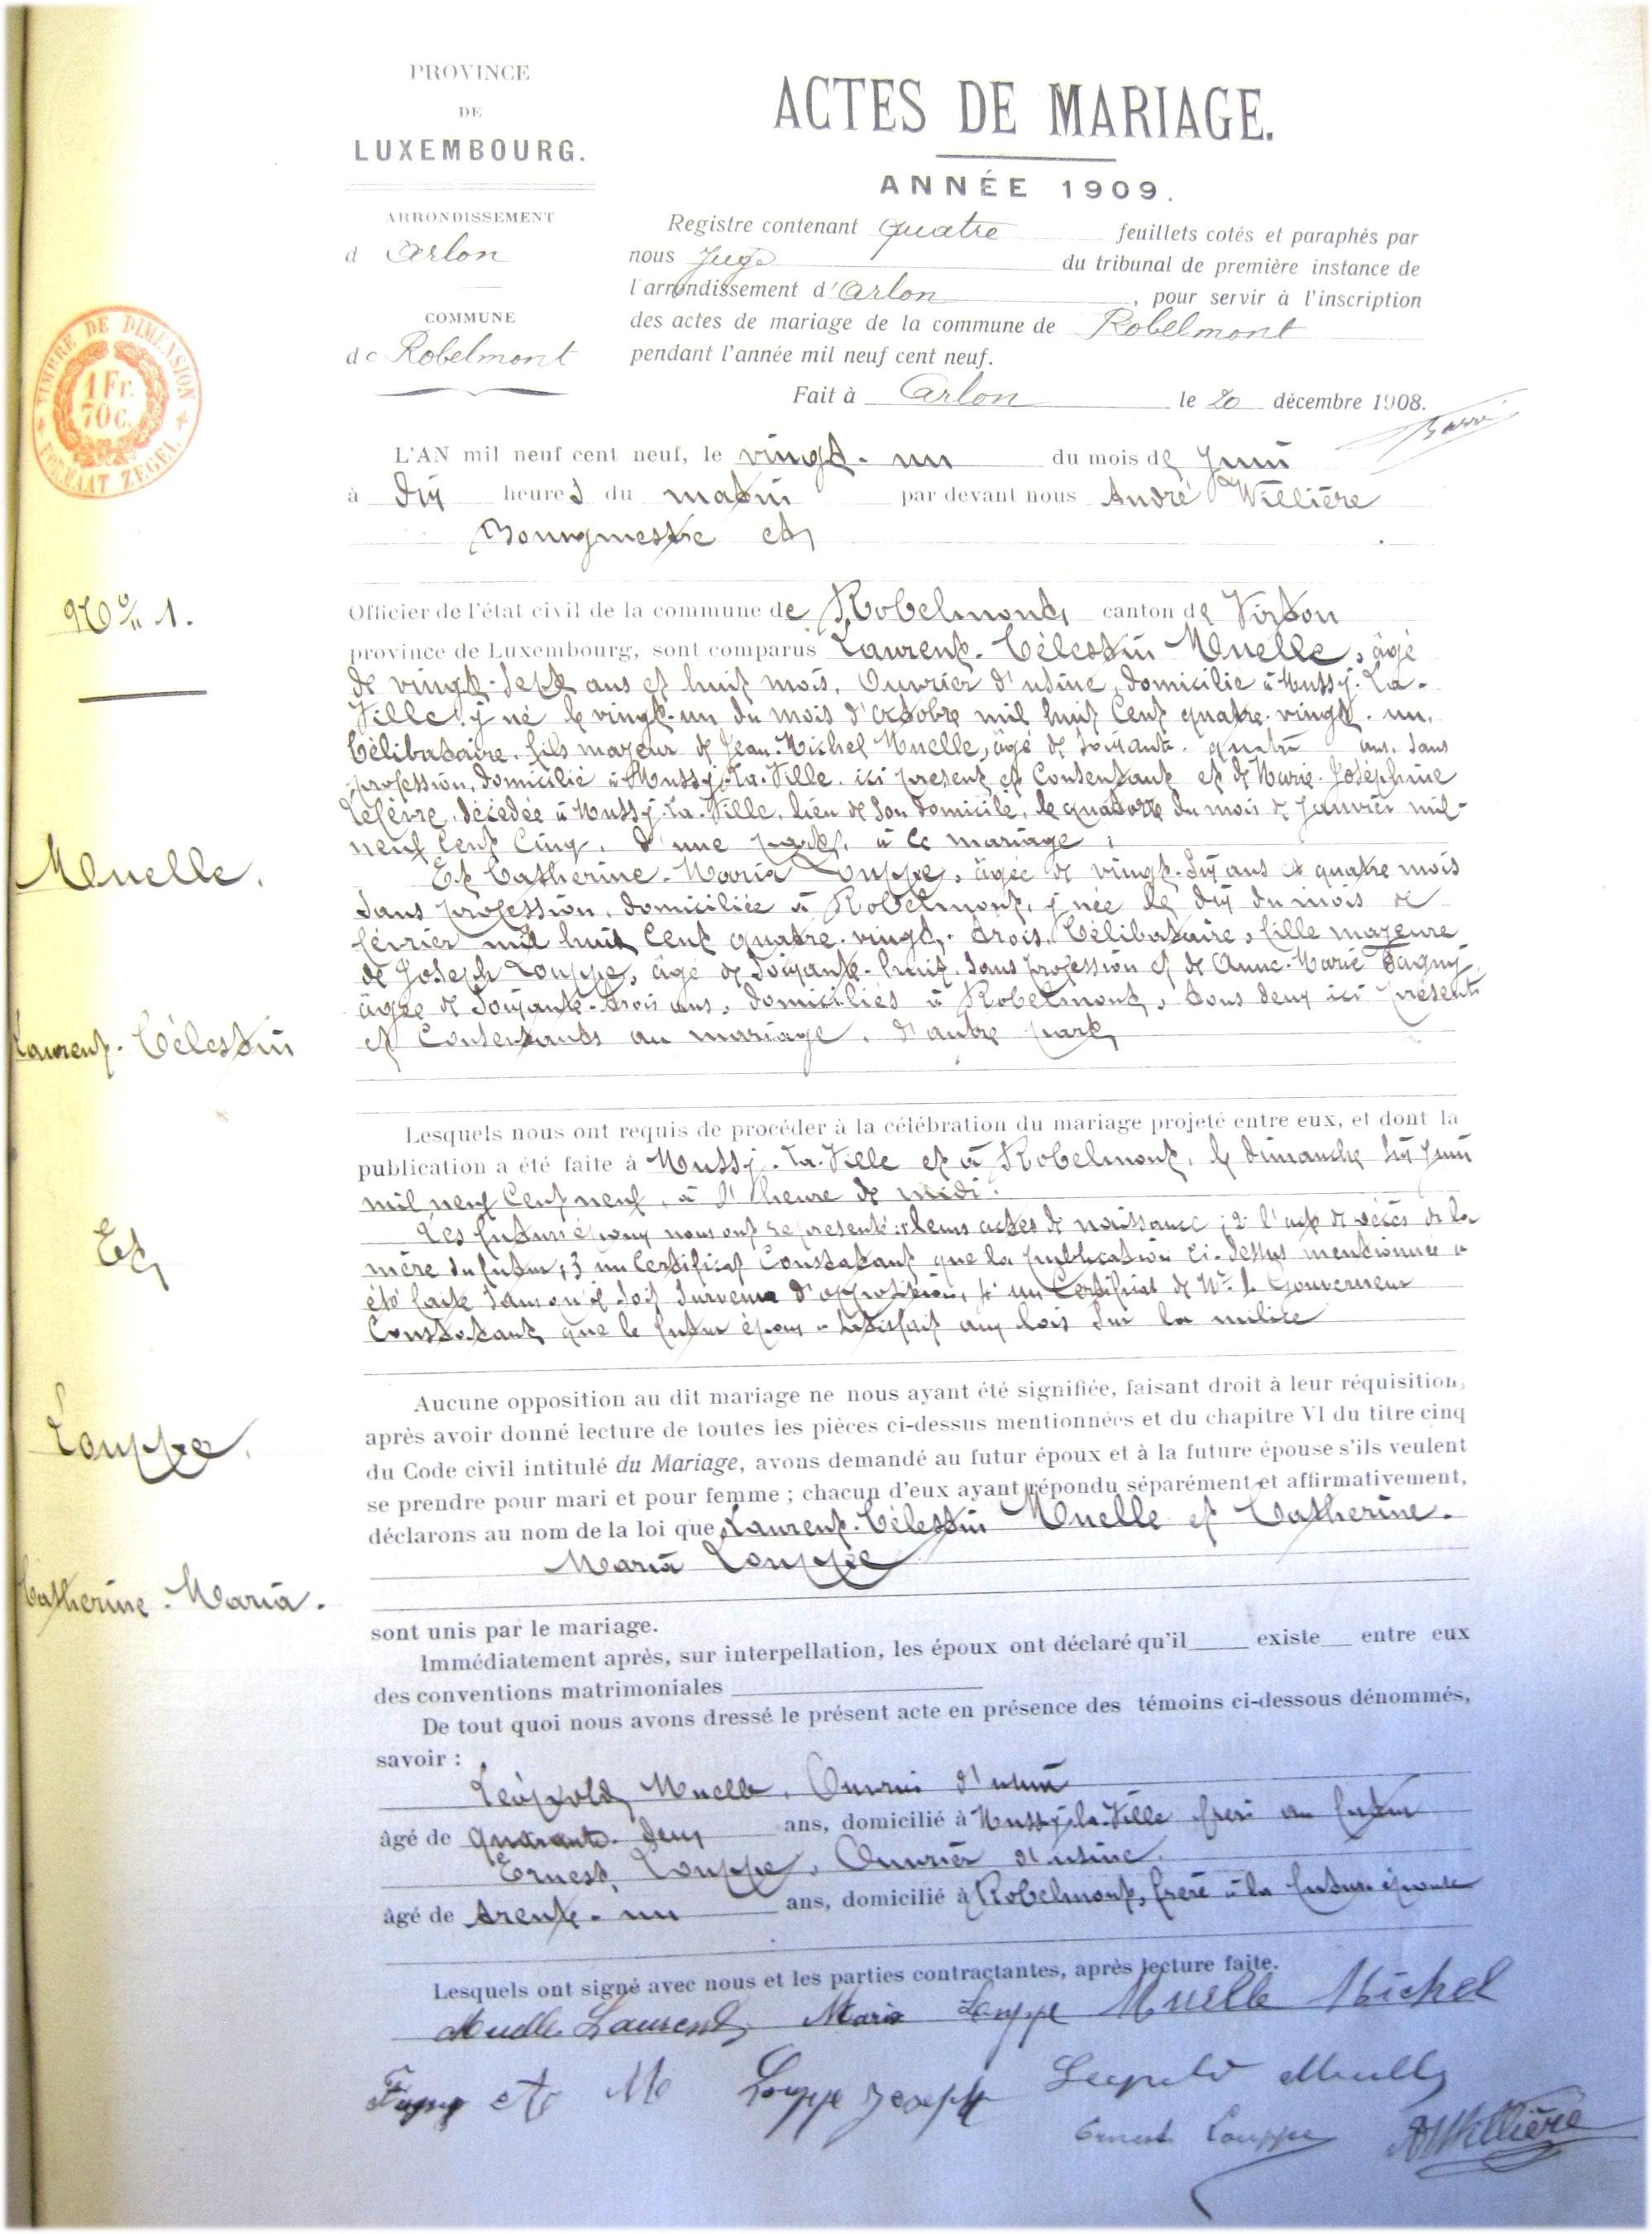 PROVINCE
DE
LUXEMBOURG.
ARRONDISSEMENT
d Arlon
COMMUNE
de Robelmont
TIMBRE DE DIMENSION
1 Fr.
70 c.
FORMAAT ZEGEL
ACTES DE MARIAGE.
ANNÉE 1909.
Registre contenant quatre feuillets cotés et paraphés par
nous Juge du tribunal de première instance de
l'arrondissement d'Arlon, pour servir à l'inscription
des actes de mariage de la commune de Robelmont
pendant l'année mil neuf cent neuf.
Fait à Arlon le 20 décembre 1908.
L'AN mil neuf cent neuf, le vingt-un du mois de Juin
à dix heures du matin par devant nous André Willière
Bourgmestre et
Officier de l'état civil de la commune de Robelmont, canton de Virton
province de Luxembourg, sont comparus Laurent-Célestin Muelle, âgé
de vingt-sept ans et huit mois, Ouvrier d'usine, domicilié à Mussy-La-
Ville y né le vingt-un du mois d'octobre mil huit cent quatre-vingt-un,
Célibataire, fils majeur de Jean-Michel Muelle, âgé de soixante-quatre ans, sans
profession, domicilié à Mussy-La-Ville, ici présent et consentant et de Marie-Joséphine
Lefèvre, décédée à Mussy-La-Ville, lieu de son domicile, le quatorze du mois de Janvier mil-
neuf cent cinq, d'une part, à ce mariage ;
Et Catherine-Maria Louppe, âgée de vingt-six ans et quatre mois
sans profession, domiciliée à Robelmont, y née le dix du mois de
février mil huit cent quatre-vingt-trois, Célibataire, fille majeure
de Joseph Louppe, âgé de soixante-huit, sans profession et de Anne-Marie Fagny,
âgée de soixante-trois ans, domiciliés à Robelmont, tous deux ici présents
et consentants au mariage, d'autre part,
Lesquels nous ont requis de procéder à la célébration du mariage projeté entre eux, et dont la
publication a été faite à Mussy-La-Ville et à Robelmont, le dimanche six Juin
mil neuf cent neuf, à l'heure de midi.
Les futurs époux nous ont représenté: 1° leurs actes de naissance ; 2° l'acte de décès de la
mère du futur ; 3 un Certificat constatant que la publication ci-dessus mentionnée a
été faite sans qu'il soit survenu d'opposition, 4° un Certificat de Mr le Gouverneur
Constatant que le futur époux a satisfait aux lois sur la milice
Aucune opposition au dit mariage ne nous ayant été signifiée, faisant droit à leur réquisition,
après avoir donné lecture de toutes les pièces ci-dessus mentionnées et du chapitre VI du titre cinq
du Code civil intitulé du Mariage, avons demandé au futur époux et à la future épouse s'ils veulent
se prendre pour mari et pour femme ; chacun d'eux ayant répondu séparément et affirmativement,
déclarons au nom de la loi que Laurent-Célestin Muelle et Catherine-
Maria Louppe
sont unis par le mariage.
Immédiatement après, sur interpellation, les époux ont déclaré qu'il existe entre eux
des conventions matrimoniales
De tout quoi nous avons dressé le présent acte en présence des témoins ci-dessous dénommés,
savoir :
Léopold Muelle, Ouvrier d'usine
âgé de quarante-deux ans, domicilié à Mussy-la-Ville frère au futur
Ernest Louppe, Ouvrier d'usine
âgé de trente-un ans, domicilié à Robelmont, frère à la future épouse
Lesquels ont signé avec nous et les parties contractantes, après lecture faite.
Muelle Laurent Maria Louppe Muelle Michel
Fagny A M Louppe Joseph Leopold Muelle
Ernest Louppe AWillière
No 1.
Muelle.
Laurent-Célestin
Et
Louppe.
Catherine-Maria.